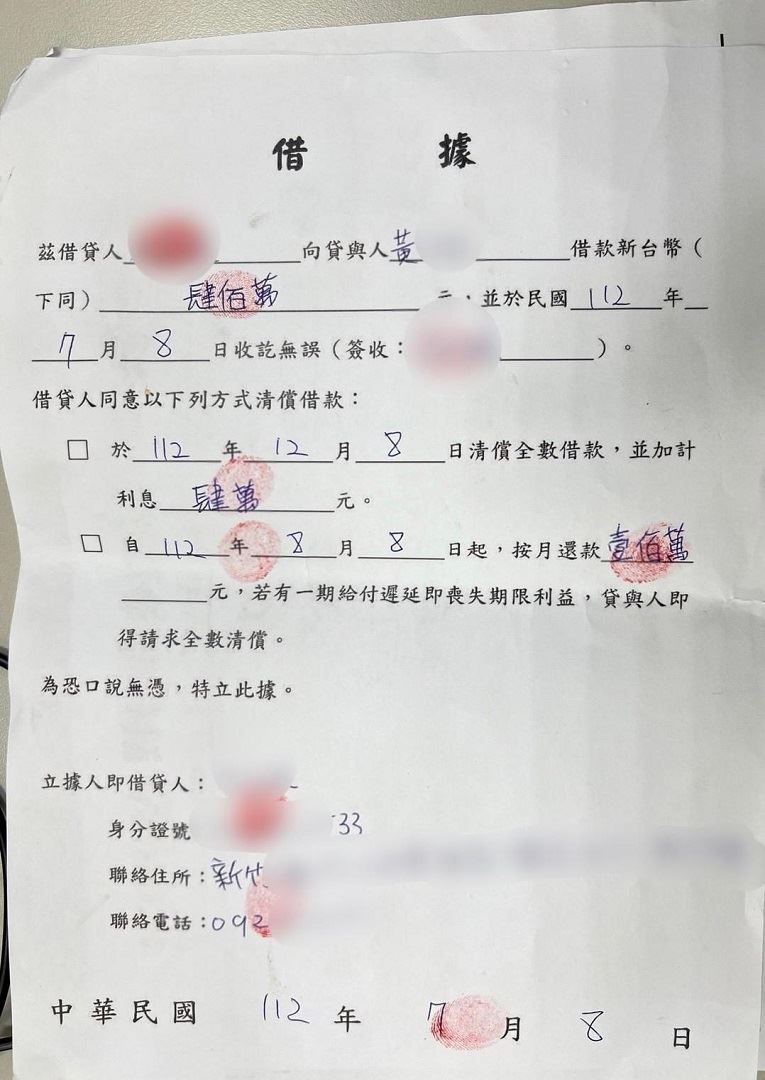 借 據
茲借貸人 向貸與人黃 借款新台幣（
下同）肆佰萬 元，並於民國 112 年
7 月 8 日收訖無誤（簽收： ）。
借貸人同意以下列方式清償借款：
□ 於 112 年 12 月 8 日清償全數借款，並加計
利息 肆萬 元。
□ 自 112 年 8 月 8 日起，按月還款壹佰萬
元，若有一期給付遲延即喪失期限利益，貸與人即
得請求全數清償。
為恐口說無憑，特立此據。
立據人即借貸人：
身分證號 33
聯絡住所：新竹
聯絡電話：092
中華民國 112 年 7 月 8 日